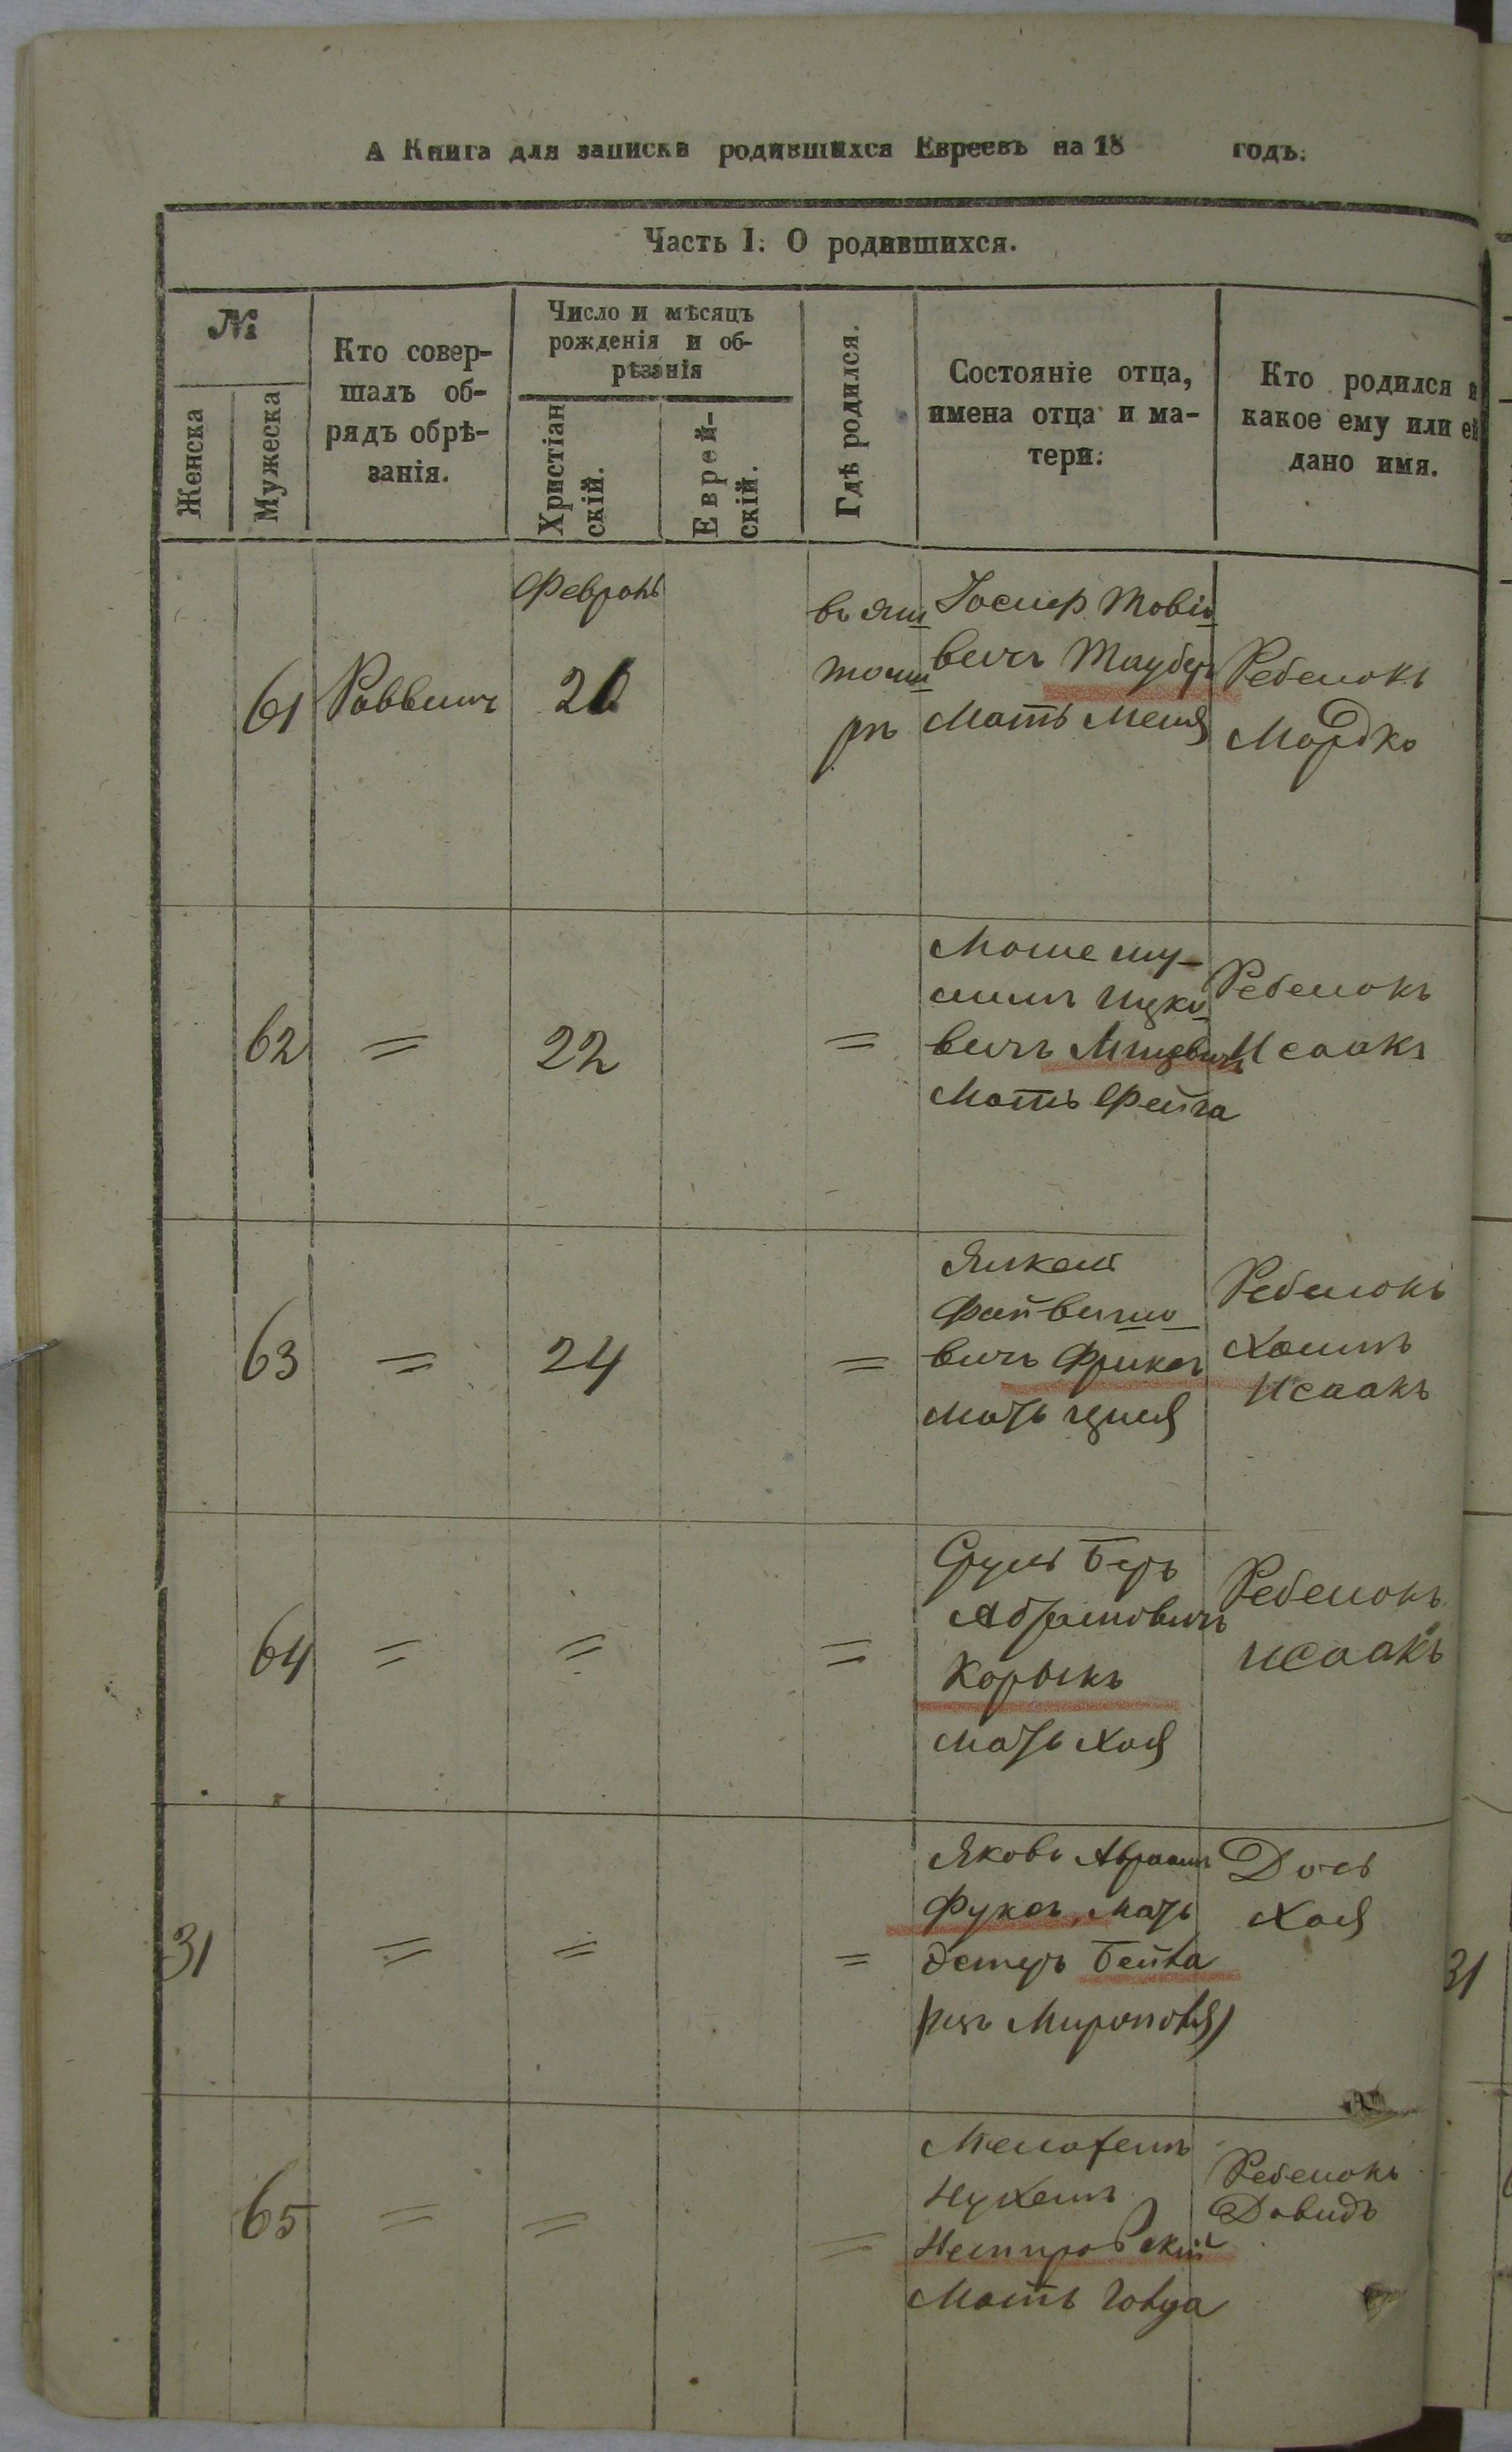 А Книга для записки родившихся Евреевъ на 18 годъ.
Часть I. О родившихся.
№
Женска
Мужеска
Кто совер-
шалъ об-
рядъ обрѣ-
занія.
Число и мѣсяцъ
рожденія и об-
рѣзанія
Христіан
скій.
Еврей-
скій.
Гдѣ родился.
Состояніе отца,
имена отца и ма-
тери.
Кто родился и
какое ему или ей
дано имя.
61
Раввинъ
Февраль
20
Іосиф Товіо
вичъ Тауберъ
Мать Меня
Ребенокъ
Мордко
62
=
22
=
Моше
Ицко
вичъ
Мать Фейга
Ребенокъ
Исаакъ
63
=
24
=
Янкель
Файвишо
вичъ Фуксъ
Мать
Ребенокъ
Хаимъ
Исаакъ
64
=
=
=
Сруль Беръ
Абрамовичъ
Корыкъ
Мать Хая
Ребенокъ
Исаакъ
31
=
=
=
Яковъ Авраамъ
Фуксъ, Мать
Эстеръ
Дочь
Хая
31
65
=
=
=
Нухемъ
Немировскій
Мать
Ребенокъ
Давидъ